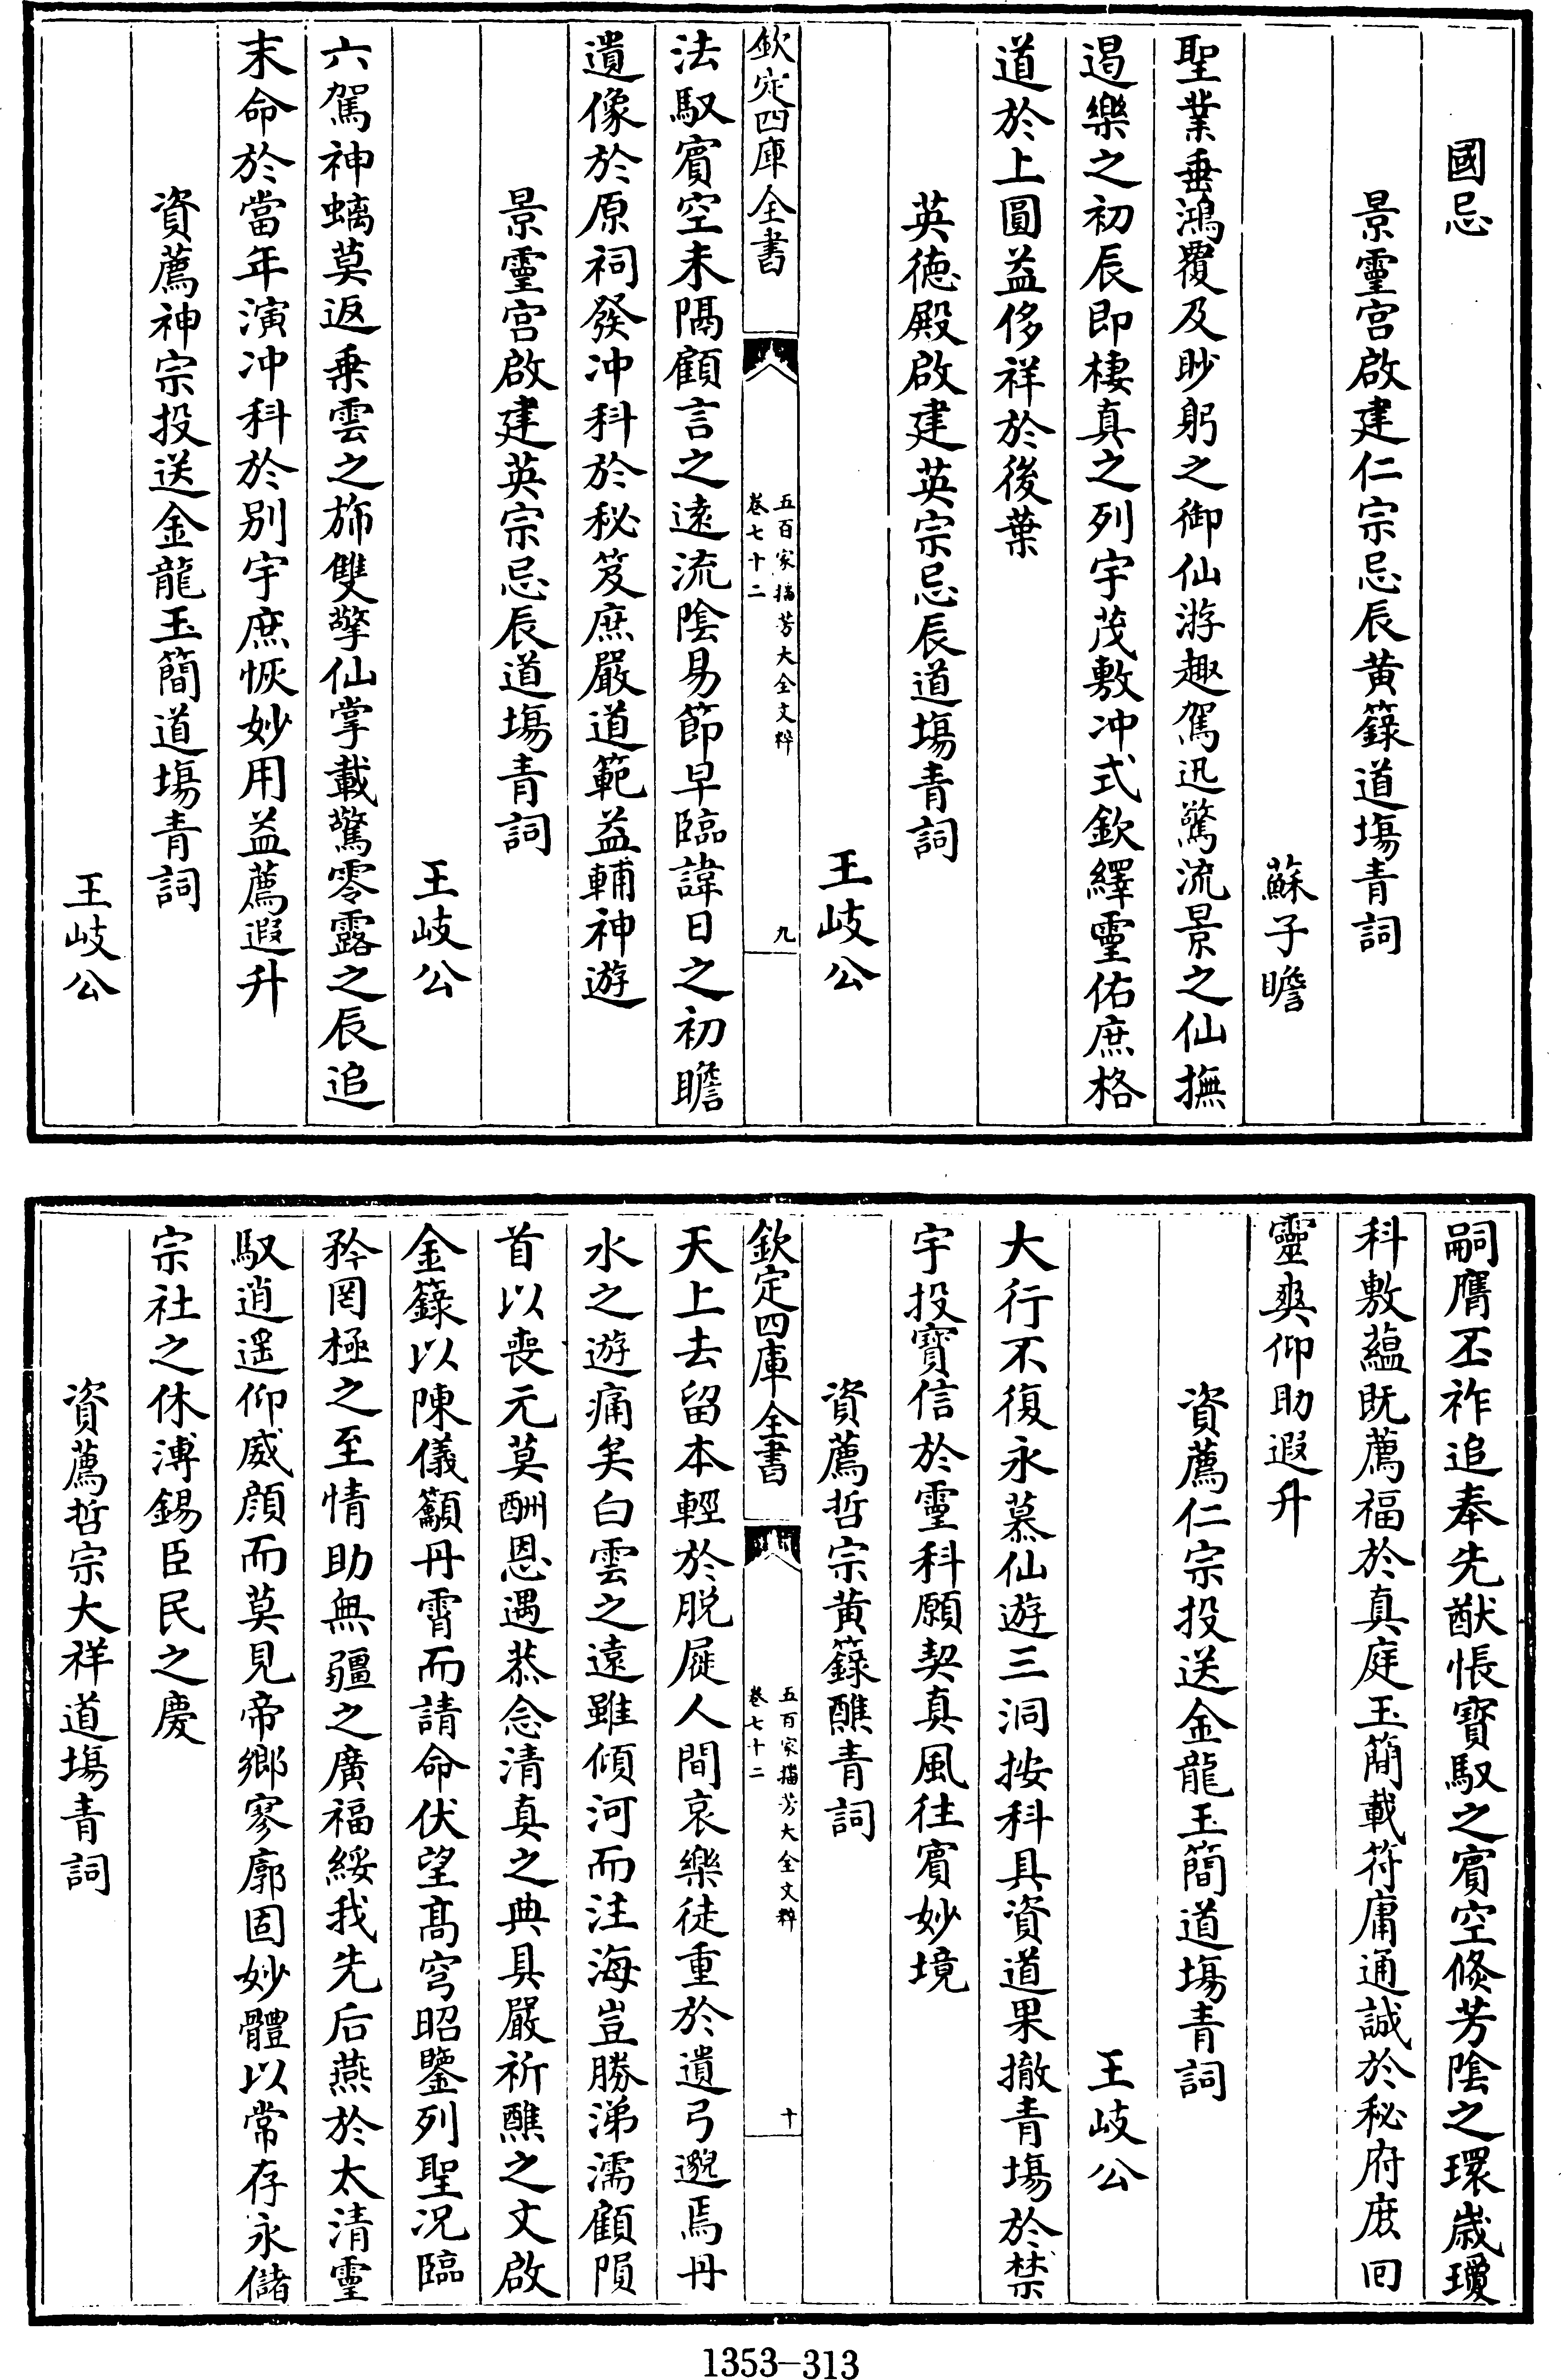 國忌
景靈宫啟建仁宗忌辰黄籙道塲青詞
蘇子瞻
聖業垂鴻覆及眇躬之御仙游趣駕迅驚流景之仙撫
遏樂之初辰即棲真之列宇茂敷冲式欽繹靈佑庶格
道於上圓益侈祥於後葉
英徳殿啟建英宗忌辰道塲青詞
王岐公
欽定四庫全書
五百家播芳大全文粹
卷七十二
九
法馭賓空未隔顧言之逺流陰易節早臨諱日之初瞻
遺像於原祠發冲科於秘笈庶嚴道範益輔神遊
景靈宫啟建英宗忌辰道塲青詞
王岐公
六駕神螭莫返乗雲之斾雙擎仙掌載驚零露之辰追
末命於當年演冲科於别宇庶恢妙用益薦遐升
資薦神宗投送金龍玉簡道塲青詞
王岐公
嗣膺丕祚追奉先猷悵寳馭之賓空倐芳陰之環嵗瓊
科敷藴既薦福於真庭玉簡載符庸通誠於秘府庶回
靈爽仰助遐升
資薦仁宗投送金龍玉簡道塲青詞
王岐公
大行不復永慕仙遊三洞按科具資道果撤青塲於禁
宇投寳信於靈科願契真風往賓妙境
資薦哲宗黄籙醮青詞
欽定四庫全書
五百家播芳大全文粹
卷七十二
十
天上去留本輕於脱屣人間哀樂徒重於遺弓邈焉丹
水之遊痛矣白雲之遠雖傾河而注海豈勝涕濡顧隕
首以喪元莫酬恩遇恭念清真之典具嚴祈醮之文啟
金籙以陳儀籲丹霄而請命伏望髙穹昭鑒列聖况臨
矜罔極之至情助無疆之廣福綏我先后燕於太清靈
馭逍遥仰威顔而莫見帝鄉寥廓固妙體以常存永儲
宗社之休溥錫臣民之慶
資薦哲宗大祥道塲青詞
1353-313